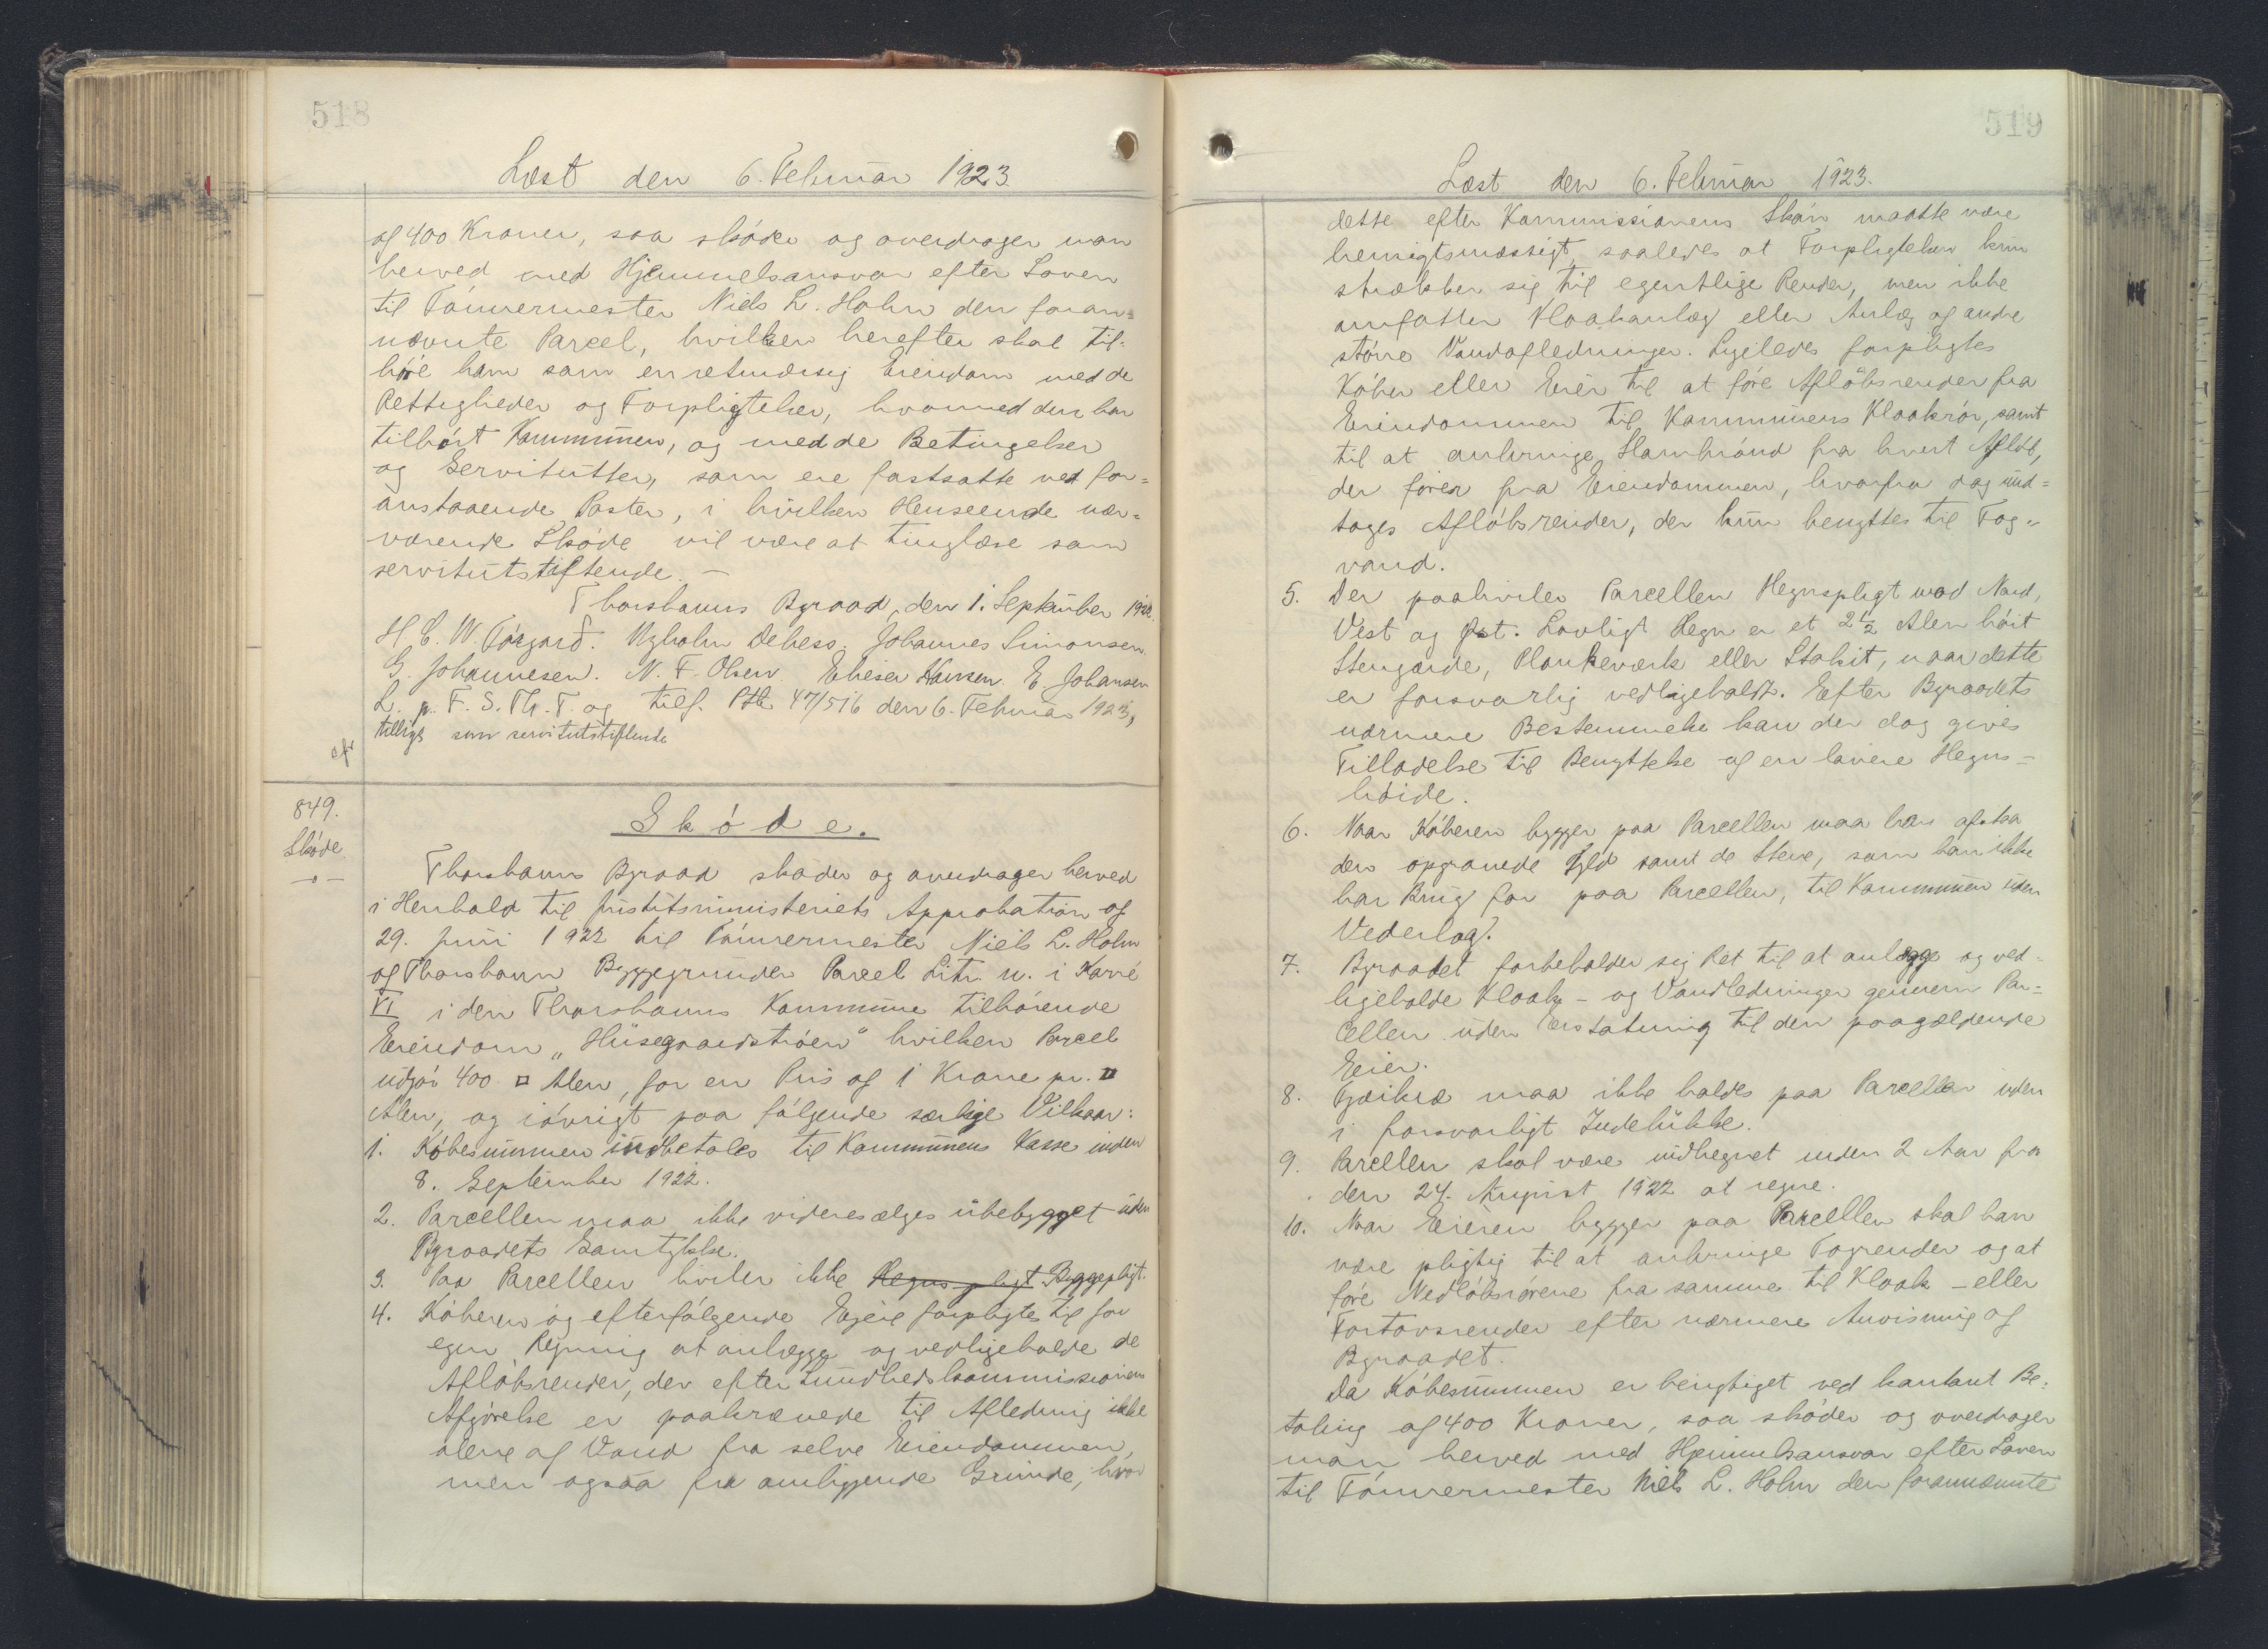 518
Læst den 6. Februar 1923.
af 400 Kroner, saa skøder og overdrager man
herved med Hjemmelsansvar efter Loven
til Tømrermester Niels L. Holm den foran=
nævnte Parcel, hvilken herefter skal til-
høre ham som en retmæssig Eiendom med de
Rettigheder og Forpligtelser, hvormed den har
tilhørt Kommunen, og med de Betingelser
og Servitutter, som ere fastsatte ved for=
anstaaende Poster, i hvilken Henseende nær=
værende Skøde vil være at tinglæse som
servitutstiftende. —
Thorshavns Byraad, den 1. September 1922.
H. C. W. Tórgarð. Ugholm Debess. Johannes Simonsen.
G. Johannesen. N. F. Olsen. Elieser Hansen. E. Johansen
L. p. F. S. Th. T. og tilf. Ptb. 47/516 den 6. Februar 1923,
tillige som servitutstiftende
cfr
849.
Skøde.
—o—
Skøde.
Thorshavns Byraad skøder og overdrager herved
i Henhold til Justitsministeriets Approbation af
29. Juni 1922 til Tømrermester Niels L. Holm
af Thorshavn Byggegrunden Parcel Litr. n. i Karré
VI i den Thorshavns Kommune tilhørende
Eiendom „Húsegaardstrøen" hvilken Parcel
udgør 400 □ Alen, for en Pris af 1 Krone pr. □
Alen, og iøvrigt paa følgende særlige Vilkaar:
1. Købesummen indbetales til Kommunens Kasse inden
8. September 1922.
2. Parcellen maa ikke videresælges ubebygget uden
Byraadets Samtykke.
3. Paa Parcellen hviler ikke Hegnspligt Byggepligt.
4. Køberen og efterfølgende Ejere forpligtes til for
egen Regning at anlægge og vedligeholde de
Afløbsrender, der efter Sundhedskommissionens
Afgørelse er paakrævede til Afledning ikke
alene af Vand fra selve Eiendommen,
men ogsaa fra omliggende Grunde, hvor
519
Læst den 6. Februar 1923.
dette efter Kommissionens Skøn maatte være
hensigtsmæssigt, saaledes at Forpligtelsen kun
strækker sig til egentlige Render, men ikke
omfatter Kloakanlæg eller Anlæg af andre
større Vandafledninger. Ligeledes forpligtes
Køber eller Eier til at føre Afløbsrender fra
Eiendommen til Kommunens Kloakrør, samt
til at anbringe Slambrønd fra hvert Afløb,
der fører fra Eiendommen, hvorfra dog und=
tages Afløbsrender, der kun benyttes til Tag-
vand.
5. Der paahviler Parcellen Hegnspligt mod Nord,
Vest og Øst. Lovligt Hegn er et 2½ Alen høit
Stengærde, Plankeværk eller Stakit, naar dette
er forsvarlig vedligeholdt. Efter Byraadets
nærmere Bestemmelse kan der dog gives
Tilladelse til Benyttelse af en lavere Hegns=
høide.
6. Naar Køberen bygger paa Parcellen maa han afstaa
den opgravede Fyld samt de Stene, som han ikke
har Brug for paa Parcellen, til Kommunen uden
Vederlag.
7. Byraadet forbeholder sig Ret til at anlægge og ved-
ligeholde Kloak- og Vandledninger gennem Par=
cellen uden Erstatning til den paagældende
Eier.
8. Fjerkræ maa ikke holdes paa Parcellen uden
i forsvarligt Indelukke.
9. Parcellen skal være indhegnet inden 2 Aar fra
den 24. August 1922 at regne.
10. Naar Eieren bygger paa Parcellen skal han
være pligtig til at anbringe Tagrender og at
føre Nedløbsrørene fra samme til Kloak- eller
Fortovsrender efter nærmere Anvisning af
Byraadet.
Da Købesummen er berigtiget ved kontant Be-
taling af 400 Kroner, saa skøder og overdrager
man herved med Hjemmelsansvar efter Loven
til Tømrermester Niels L. Holm den forannævnte